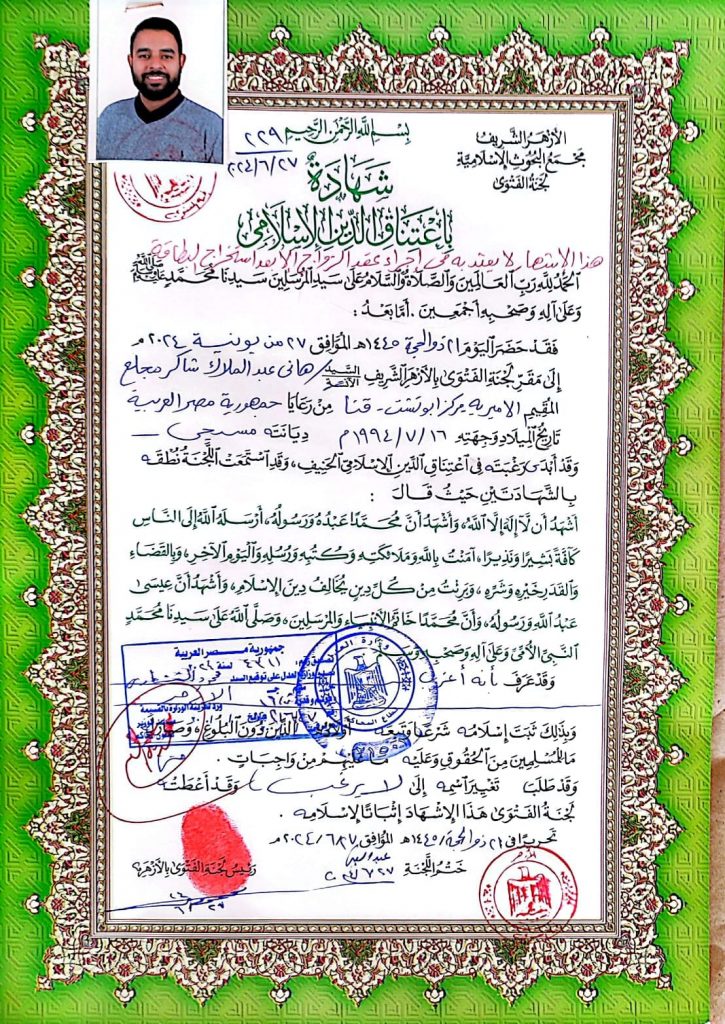 الأزهر الشريف
مجمع البحوث الإسلامية
لجنة الفتوى
بسم الله الرحمن الرحيم
٢٢٩
٢٠٢٤/٦/٢٧
شهادة
باعتناق الدين الإسلامي
هذا الإشهار لا يعتد به في إجراء عقد الزواج إلا بعد استخراج البطاقة
الحمد لله رب العالمين والصلاة والسلام على سيد المرسلين سيدنا محمد ﷺ
وعلى آله وصحبه أجمعين . أما بعد :
فقد حضر اليوم ٢١ ذو الحجة ١٤٤٥هـ الموافق ٢٧ من يونية ٢٠٢٤ م
إلى مقر لجنة الفتوى بالأزهر الشريف السيد / الآنسة هاني عبد الملاك شاكر مجلع
المقيم الاميرية مركز ابوتشت - قنا من رعايا جمهورية مصر العربية
تاريخ الميلاد وجهته ١٦ / ٧ / ١٩٩٤ م ديانته مسيحي
وقد أبدى رغبته في اعتناق الدين الإسلامي الحنيف ، وقد استمعت اللجنة نطقه
بالشهادتين حيث قال :
أشهد أن لا إله إلا الله ، وأشهد أن محمدا عبده ورسوله ، أرسله الله إلى الناس
كافة بشيرا ونذيرا ، آمنت بالله وملائكته وكتبه ورسله واليوم الآخر ، وبالقضاء
والقدر خيره وشره ، وبرئت من كل دين يخالف دين الإسلام ، وأشهد أن عيسى
عبد الله ورسوله ، وأن محمدا خاتم الأنبياء والمرسلين ، وصلى الله على سيدنا محمد
النبي الأمي وعلى آله وصحبه وسلم
وقد عرف بأنه أعزب
جمهورية مصر العربية
وبذلك ثبت إسلامه شرعا وتبعه أولاده الذين دون البلوغ ، وصار له
ما للمسلمين من الحقوق وعليه ما عليهم من واجبات .
وقد طلب تغيير اسمه إلى ( لا يرغب ) وقد أعطته
لجنة الفتوى هذا الإشهاد إثباتا لإسلامه .
تحريرا في ٢١ ذو الحجة / ١٤٤٥هـ الموافق ٢٧ / ٦ / ٢٠٢٤ م
ختم اللجنة
رئيس لجنة الفتوى بالأزهر